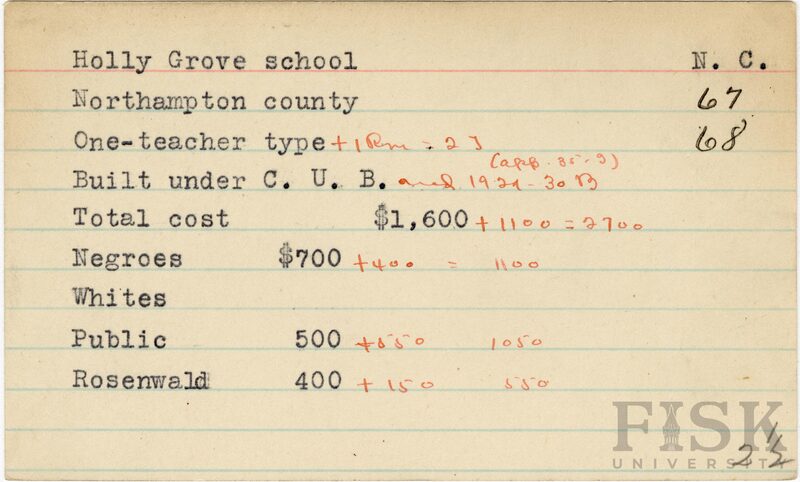 Holly Grove school N. C.
Northampton county 67
One-teacher type + 1 Rm = 2 T 68
(app. 35-9)
Built under C. U. B. and 1929-30 B
Total cost $1,600 + 1100 = 2700
Negroes $700 + 400 = 1100
Whites
Public 500 + 550 1050
Rosenwald 400 + 150 550
FISK
UNIVERSITY
2 1/2